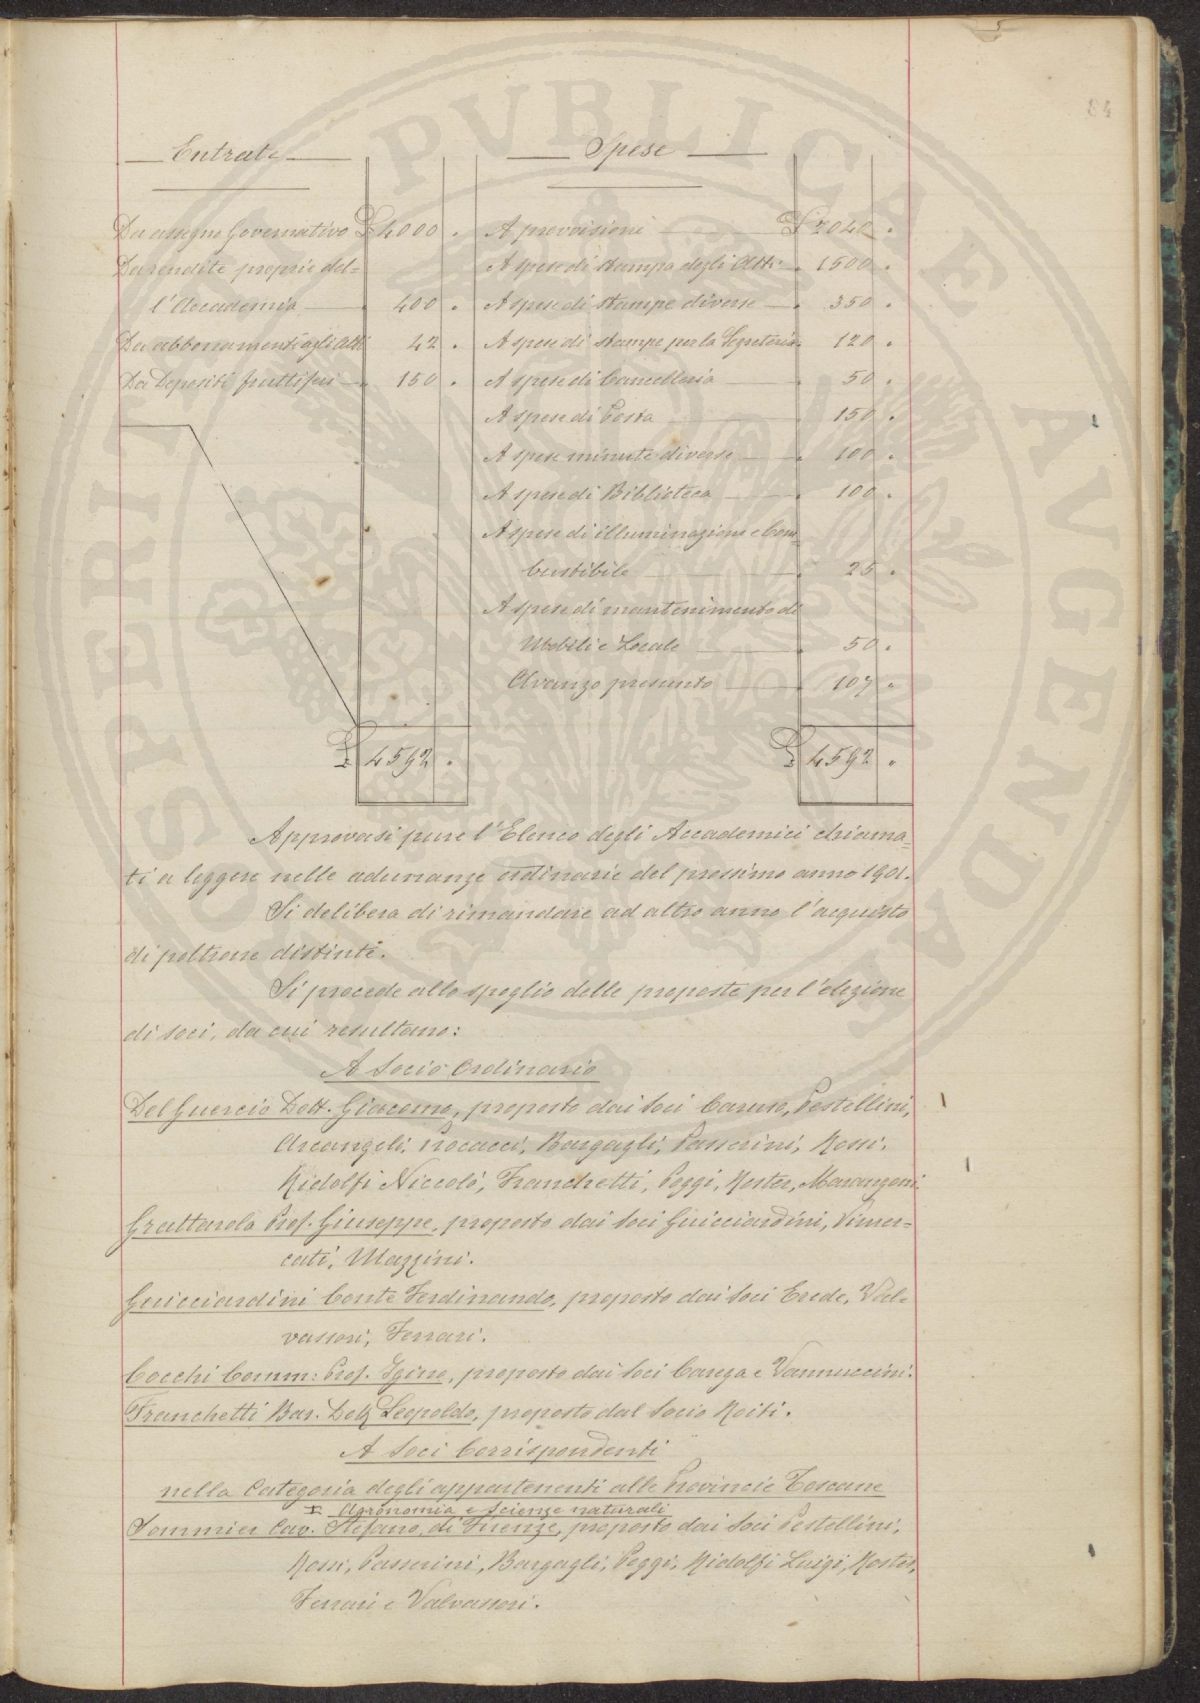 84
Entrate
Da assegno Governativo £ 4000 "
Da rendite proprie del=
l'Accademia " 400 "
Da abbonamenti agli Atti 42 "
Da Depositi fruttiferi " 150 "
£ 4592 "
Spese
A provvisioni £ 2040 "
A spese di stampa degli Atti " 1500 "
A spese di stampe diverse " 350 "
A spese di stampe per la Segreteria " 120 "
A spese di Cancelleria " 50 "
A spese di Posta " 150 "
A spese minute diverse " 100 "
A spese di Biblioteca " 100 "
A spese di illuminazione e Com=
bustibile " 25 "
A spese di mantenimento di
Mobili e Locale " 50 "
Avanzo presunto " 107 "
£ 4592 "
Approvasi pure l'Elenco degli Accademici chiama=
ti a leggere nelle adunanze ordinarie del prossimo anno 1901.
Si delibera di rimandare ad altro anno l'acquisto
di poltrone distinte.
Si procede allo spoglio delle proposte per l'elezione
di soci, da cui resultano:
A Socio Ordinario
Del Guercio Dott. Giacomo, proposto dai Soci Caruso, Pestellini,
Arcangeli, Procacci, Bargagli, Passerini, Rossi,
Ridolfi Niccolò, Franchetti, Peggi, Roster, Marangoni.
Grattarola Prof. Giuseppe, proposto dai Soci Guicciardini, Vimer=
cati, Mazzini.
Guicciardini Conte Ferdinando, proposto dai Soci Erede, Val=
vassori, Ferrari.
Cocchi Comm: Prof. Igino, proposto dai Soci Carega e Vannuccini.
Franchetti Bar. Dott. Leopoldo, proposto dal Socio Roiti.
A Soci Corrispondenti
nella Categoria degli appartenenti alle Provincie Toscane
I Agronomia e Scienze naturali
Sommier Cav. Stefano, di Firenze, proposto dai Soci Pestellini,
Rossi, Passerini, Bargagli, Peggi, Ridolfi Luigi, Roster,
Ferrari e Valvassori.
PROSPERITATI PVBLICAE AVGENDAE